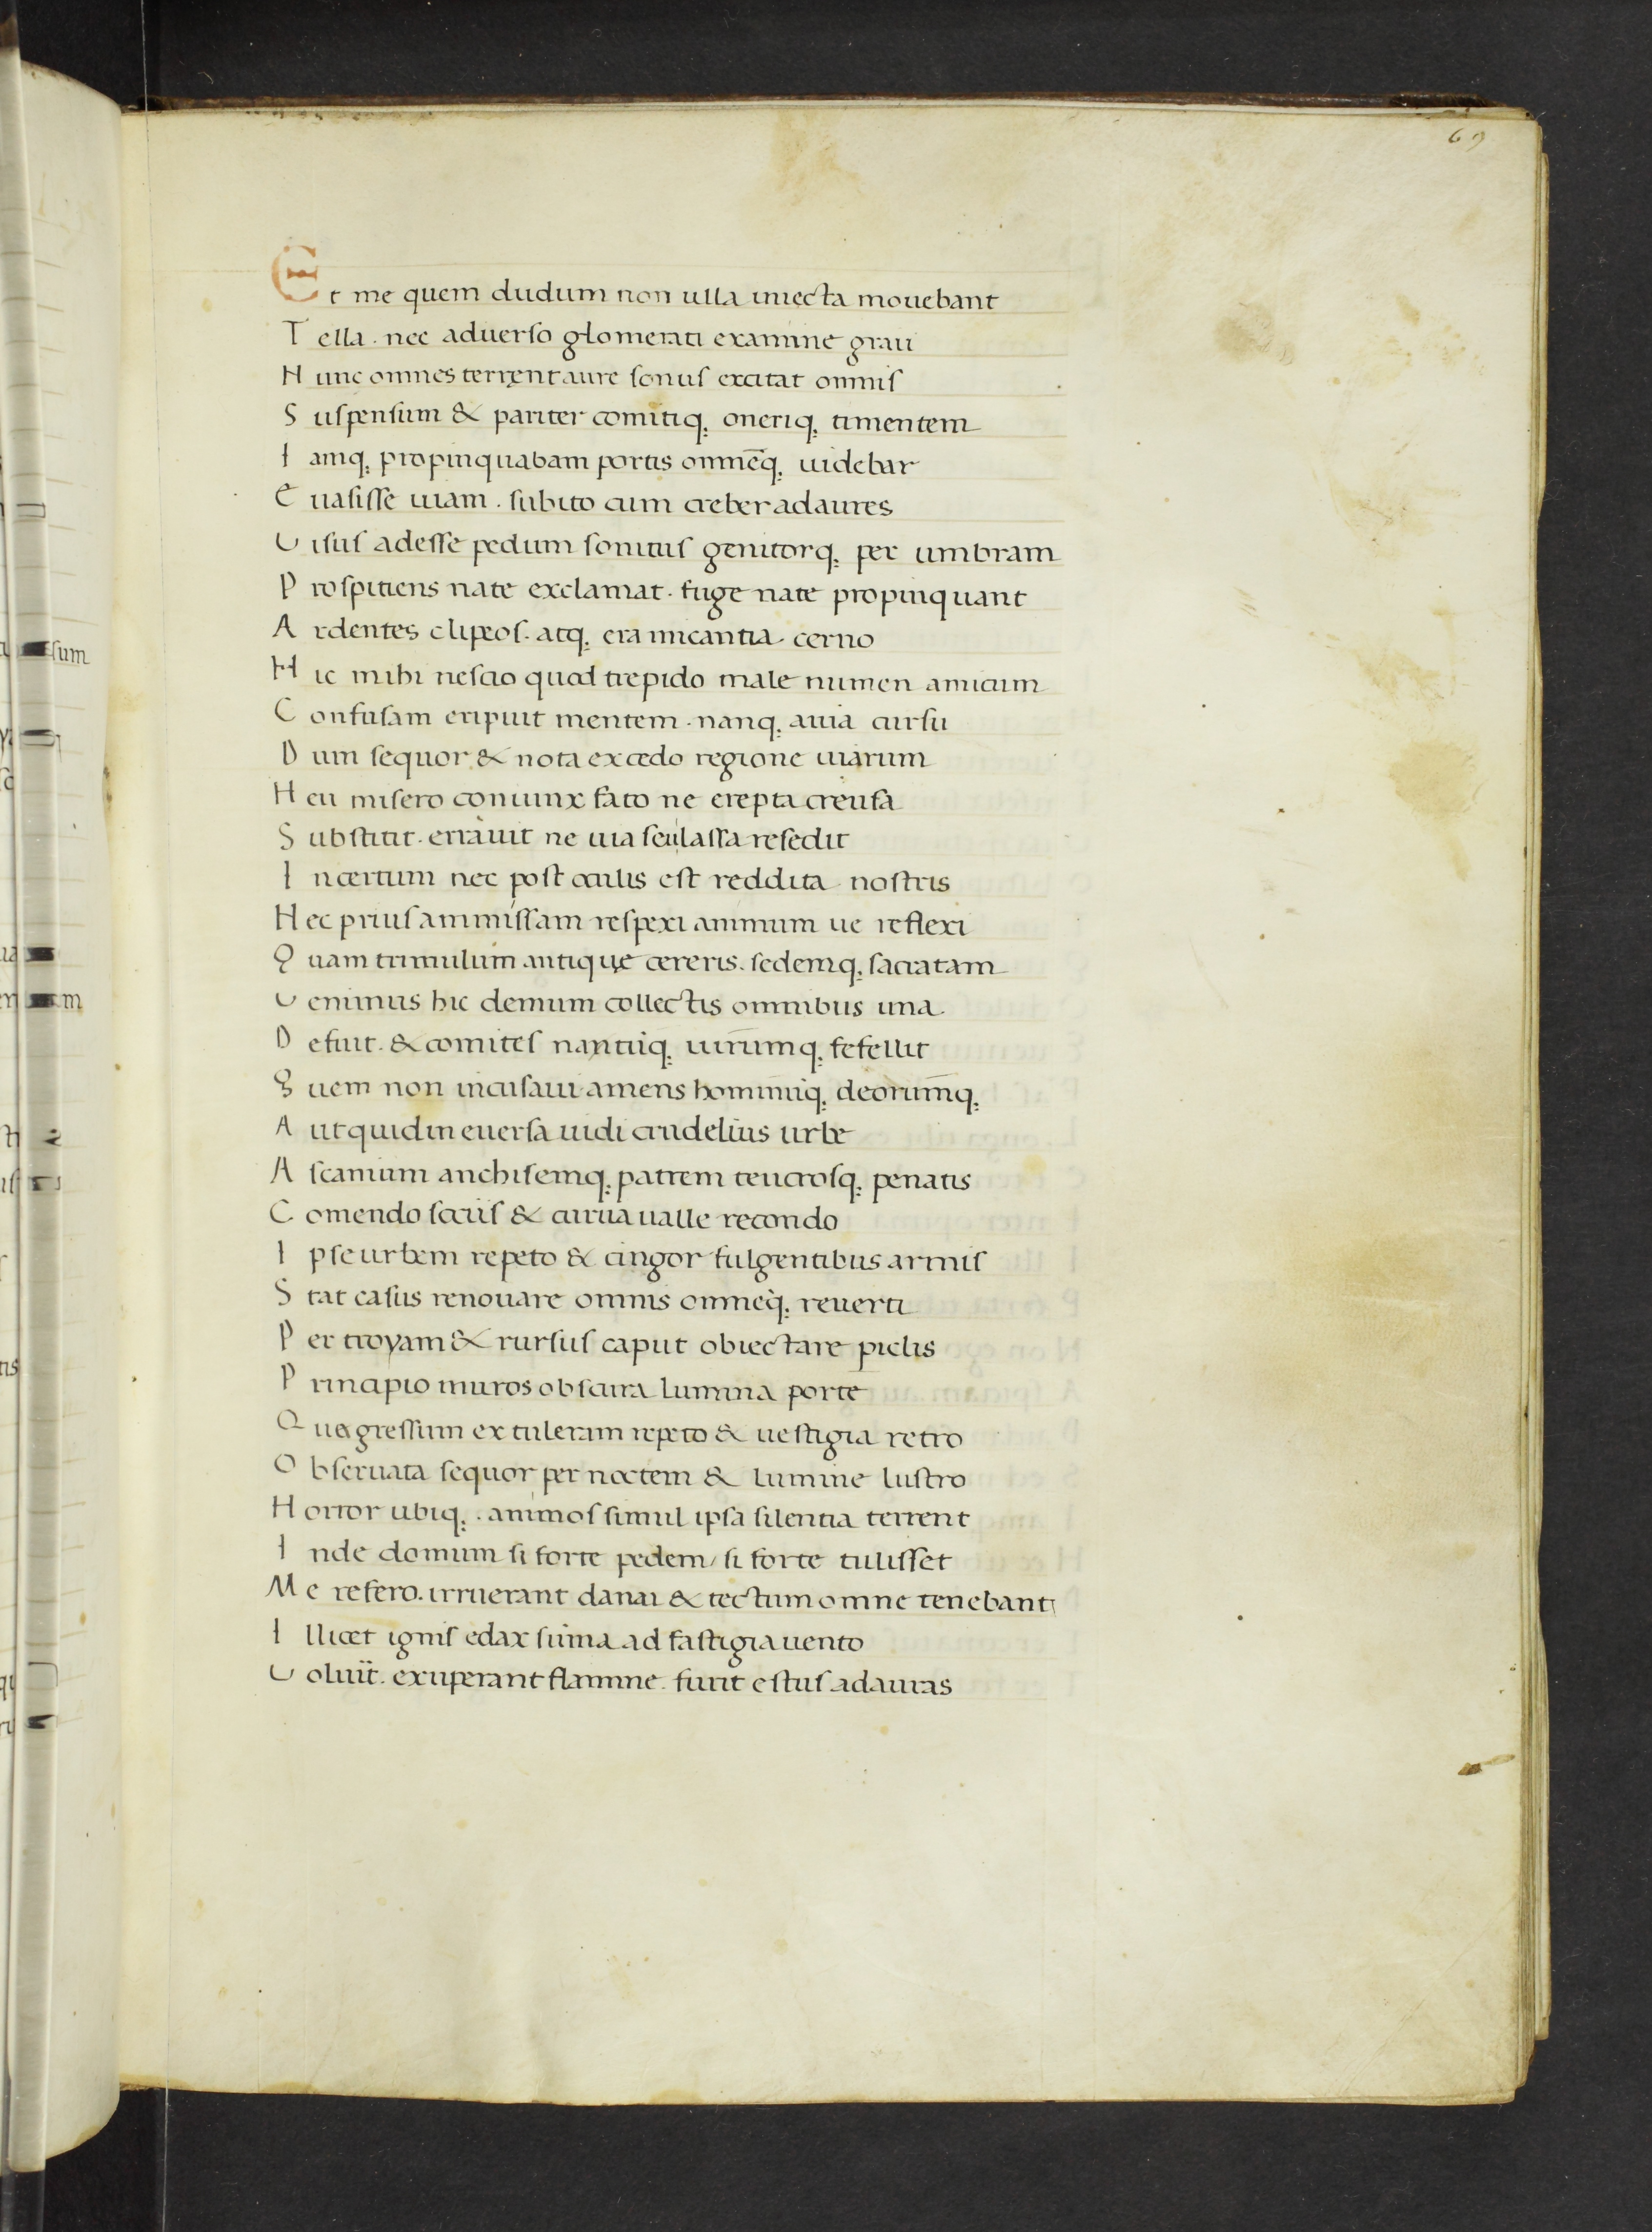 69
Et me quem dudum non ulla iniecta mouebant
Tella . nec aduerso glomerati examine graii
Hunc omnes terrent aure sonus excitat omnis
Suspensum & pariter comitiq; oneriq; timentem
Iamq; propinquabam portis omnēq; uidebar
Euasisse uiam . subito cum creber ad aures
Uisus adesse pedum sonitus genitorq; per umbram
Prospitiens nate exclamat . fuge nate propinquant
Ardentes clipeos . atq; era micantia cerno
Hic mihi nescio quod trepido male numen amicum
Confusam eripuit mentem . nanq; auia cursu
Dum sequor & nota excedo regione uiarum
Heu misero coniunx fato ne erepta creusa
Substitit . errauit ne uia seu lassa resedit
Incertum nec post oculis est reddita nostris
Hec prius ammissam respexi animum ue reflexi
Quam trimulum antique cereris . sedemq; sacratam
Uenimus hic demum collectis omnibus una
Defuit . & comites nantūq; uirumq; fefellit
Quem non incusaui amens hominūq; deorumq;
Aut quid in euersa uidi crudelius urbe
Ascanium anchisemq; patrem teucrosq; penatis
Comendo sociis & curua ualle recondo
Ipse urbem repeto & cingor fulgentibus armis
Stat casus renouare omnis omneq; reuerti
Per troyam & rursus caput obiectare piclis
Principio muros obscura lumina porte
Qua gressum extuleram repeto & uestigia retro
Obseruata sequor per noctem & lumine lustro
Horror ubiq; . animos simul ipsa silentia terrent
Inde domum si forte pedem / si forte tulisset
Me refero . irruerant danai & tectum omne tenebant
Illicet ignis edax suma ad fastigia uento
Uoluit . exuperant flamme . furit estus ad auras